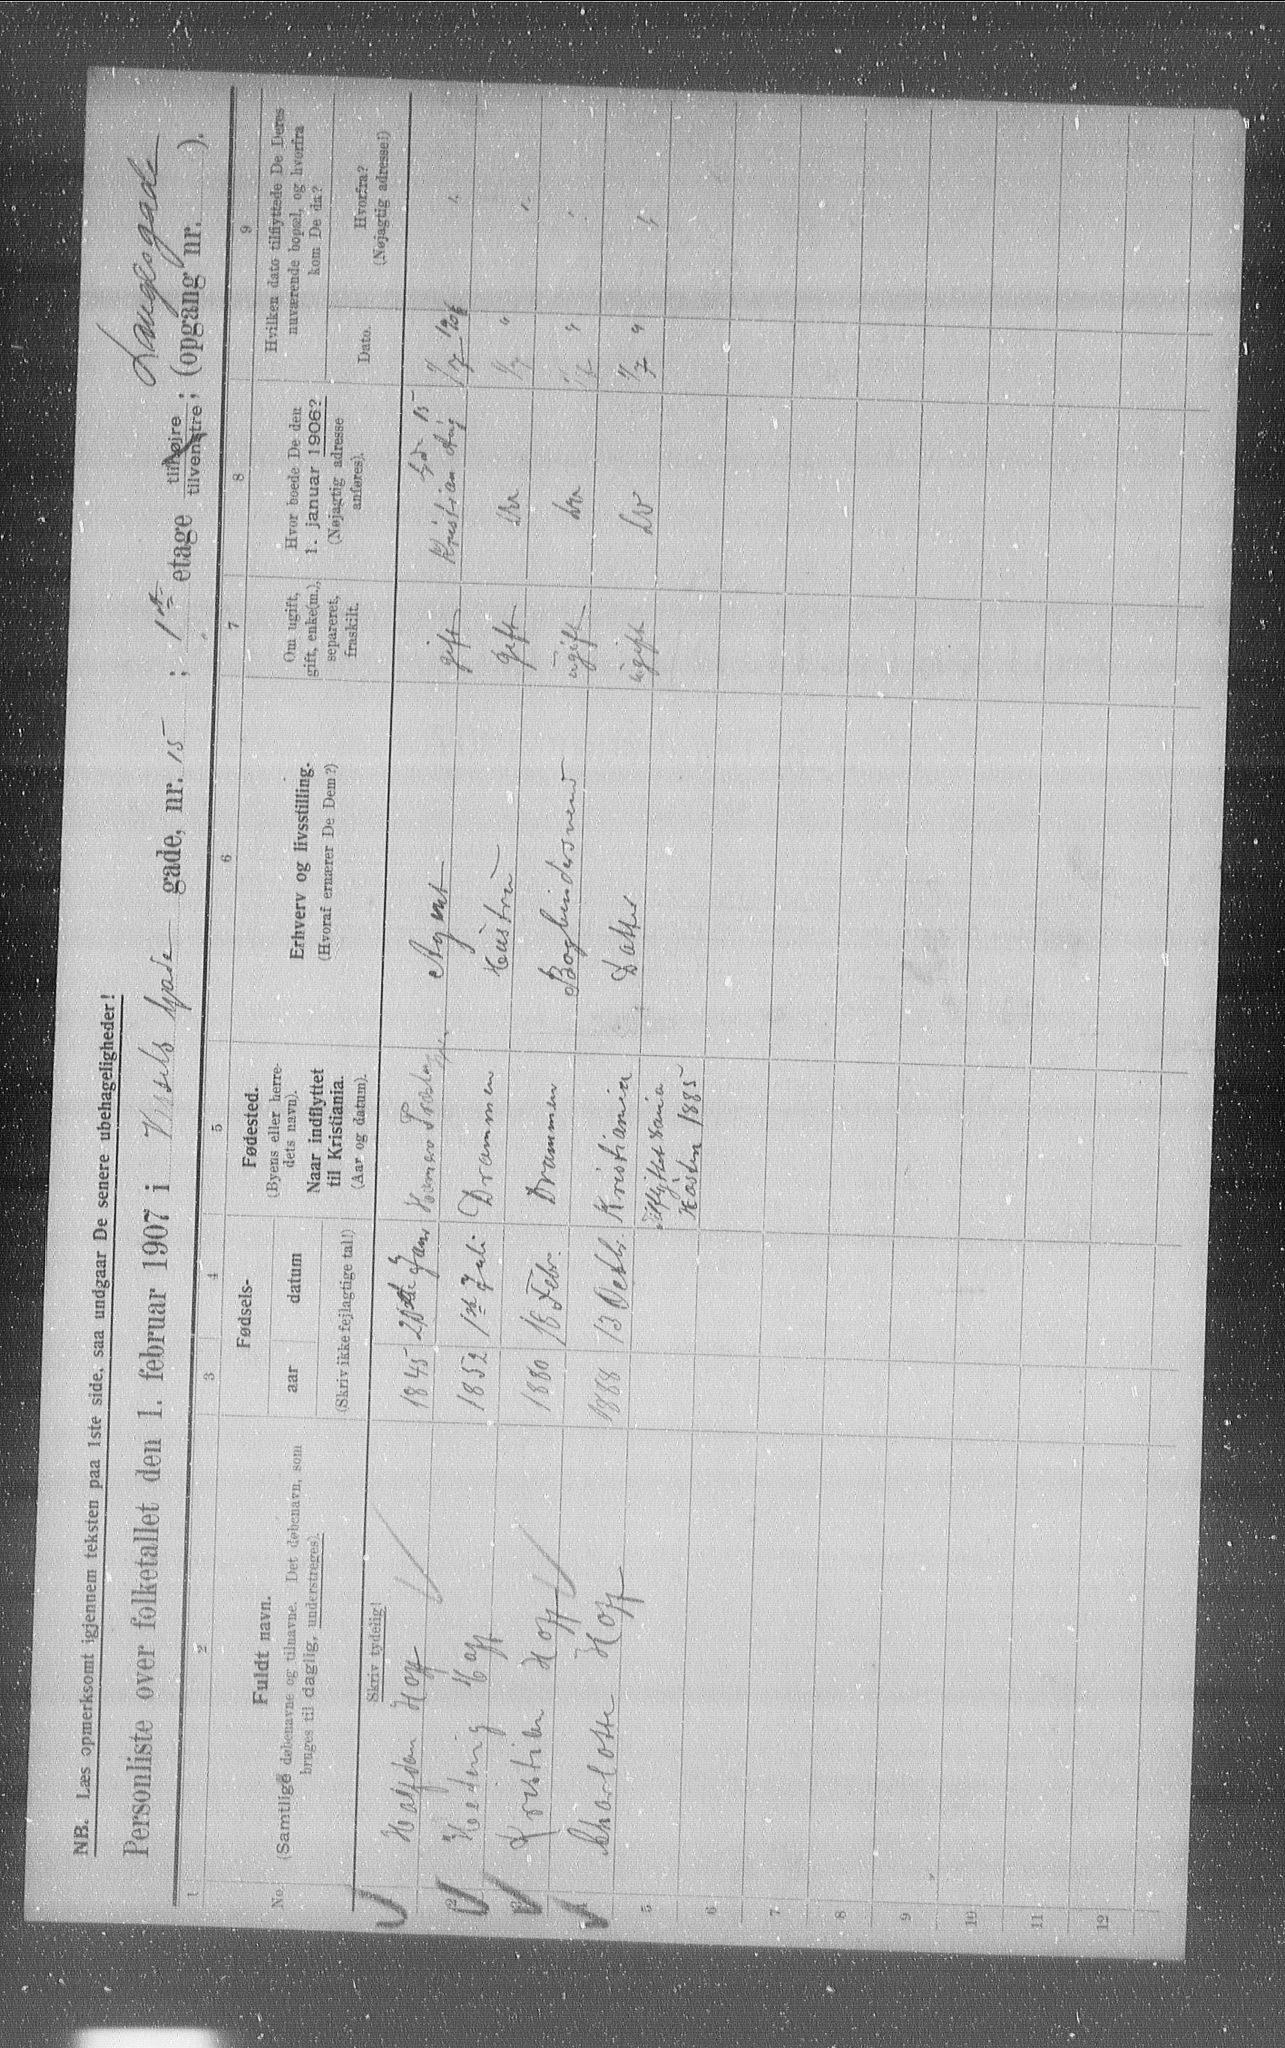 NB. Læs opmerksomt igjennem teksten paa 1ste side, saa undgaar De senere ubehageligheder!
Langesgade
Personliste over folketallet den 1. februar 1907 i Vessels gade gade, nr. 15 ; 1ste etage tilhøjre tilvenstre; (opgang nr. ).
1 2 3 4 5 6 7 8 9
No.
Fuldt navn.
(Samtlige døbenavne og tilnavne. Det døbenavn, som
bruges til daglig, understreges).
Skriv tydelig!
Fødsels-
aar datum
(Skriv ikke fejlagtige tal!)
Fødested.
(Byens eller herre-
dets navn).
Naar indflyttet
til Kristiania.
(Aar og datum).
Erhverv og livsstilling.
(Hvoraf ernærer De Dem?)
Om ugift,
gift, enke(m.),
separeret,
fraskilt.
Hvor boede De den
1. januar 1906?
(Nøjagtig adresse
anføres).
Hvilken dato tilflyttede De Deres
nuværende bopæl, og hvorfra
kom De da?
Dato.
Hvorfra?
(Nøjagtig adresse!)
1 Halfdan Hoff 1845 Janr Agent gift Kristian Aug gd 15 1/7 1906
2 Hedvig Hoff 1852 1ste Juli Drammen Hustru gift Do 1/7 "
3 Kristian Hoff 1880 16 Febr. Drammen Bogbindersvend ugift Do 1/7 "
4 Charlotte Hoff 1888 13 Octb. Kristiania Datter ugift Do 1/7 "
5 Tilflyttet Kania
Høsten 1885
6
7
8
9
10
11
12